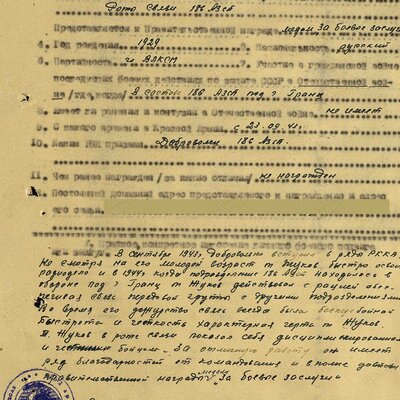 Рота связи 186 АЗСП
Представляется к Правительственной награде медали За боевые заслуги
4. Год рождения 1929 5. Национальность русский
6. Партийность чл ВЛКСМ 7. Участие в гражданской войне
последующих боевых действиях по защите СССР и Отечественной вой-
не /где, когда/ В составе 186 АЗСП под г Гранц
8. Имеет ли ранения и контузии в Отечественной войне не имеет
9. С какого времени в Красной Армии с 23.09.43г.
10. Каким РВК призван Доброволец 186 АЗСП
11. Чем ранее награжден /за какие отличия/ не награжден
12. Постоянный домашний адрес представляемого к награждению и адрес
его семьи
1. Краткое конкретное изложение личного боевого подвига
В сентябре 1943г. добровольно вступил в ряды РККА.
Не смотря на его молодой возраст т Жуков быстро освоил
радиодело и в 1944г когда подразделение 186 АЗСП находилось в
обороне под г Гранц т Жуков действовал с рацией обес-
печивая связь передовой группы с другими подразделениями
Во время его дежурства связь всегда была бесперебойная
Быстрота и четкость характерная черта т Жуков.
т. Жуков в роте связи показал себя дисциплинированным
и честным бойцом. За отличную работу он имеет
ряд благодарностей от командования и вполне достоин
правительственной награды медали За боевые заслуги